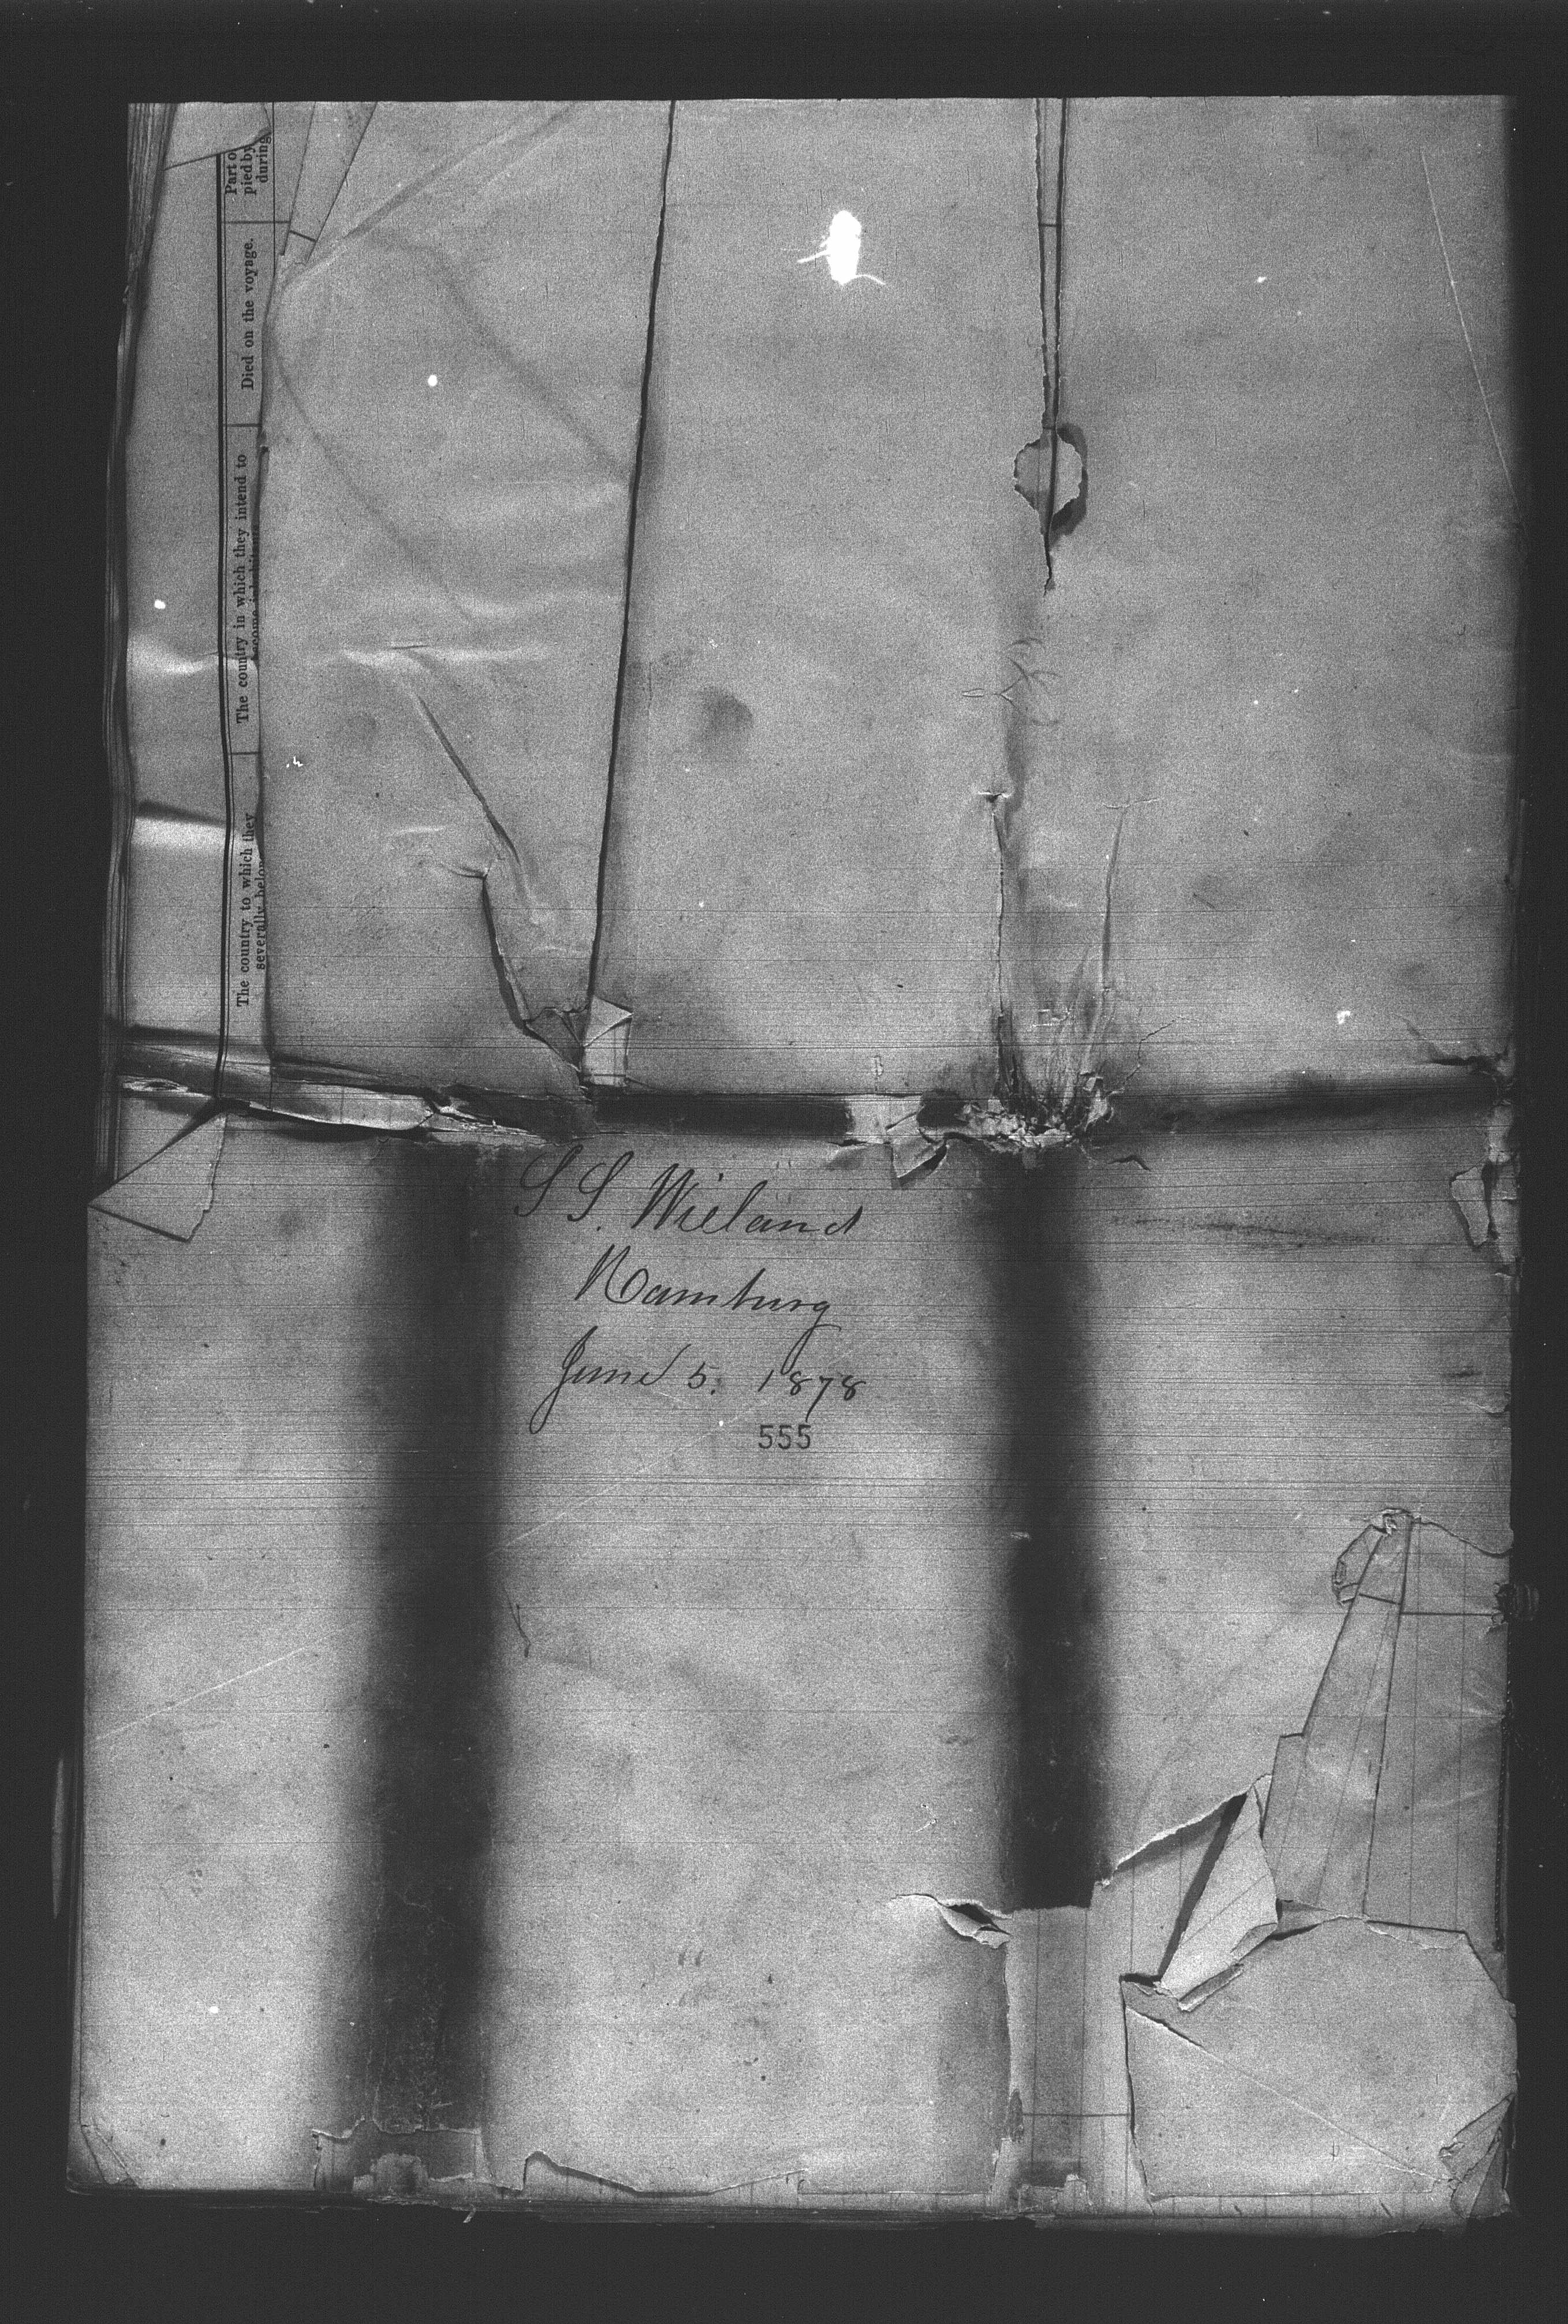 Part o
pied by
during
Died on the voyage.
The country in which they intend to
The country to which they
severally belon
S S. Wieland
Hamburg
June 5. 1878
555